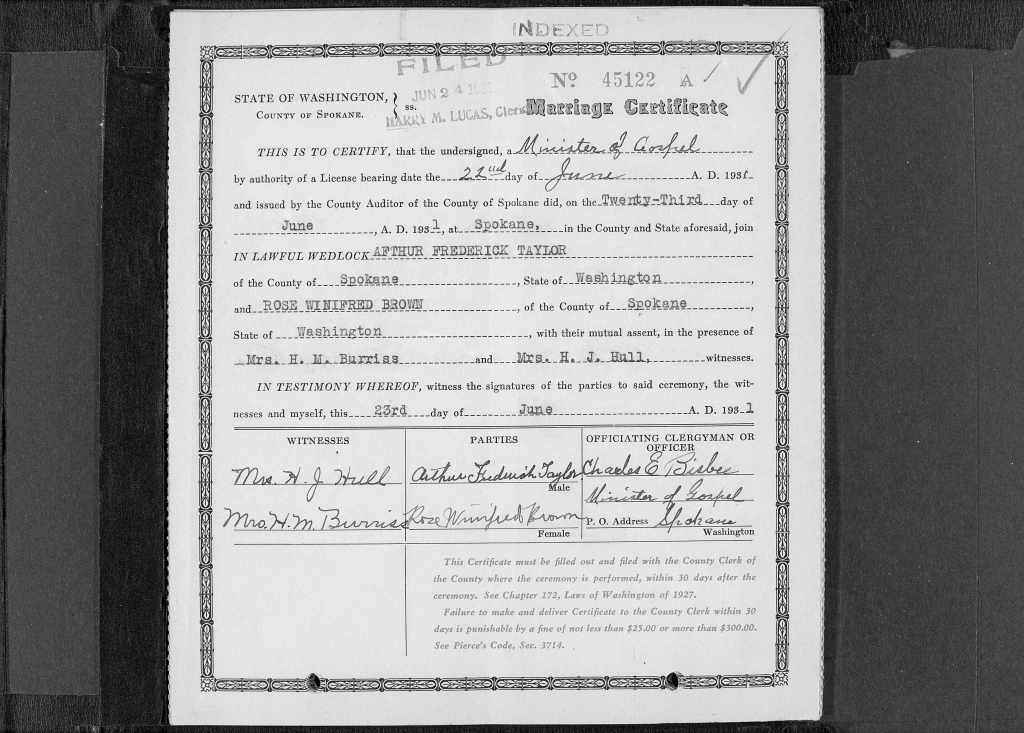 INDEXED
FILED
No 45122 A
STATE OF WASHINGTON,
COUNTY OF SPOKANE.
ss.
JUN 24
HARRY M. LUCAS, Clerk
Marriage Certificate
THIS IS TO CERTIFY, that the undersigned, a Minister of Gospel
by authority of a License bearing date the 22nd day of June A. D. 1931
and issued by the County Auditor of the County of Spokane did, on the Twenty-Third day of
June, A. D. 1931, at Spokane, in the County and State aforesaid, join
IN LAWFUL WEDLOCK AFTHUR FREDERICK TAYLOR
of the County of Spokane, State of Washington,
and ROSE WINIFRED BROWN, of the County of Spokane,
State of Washington, with their mutual assent, in the presence of
Mrs. H. M. Burriss and Mrs. H. J. Hull, witnesses.
IN TESTIMONY WHEREOF, witness the signatures of the parties to said ceremony, the wit-
nesses and myself, this 23rd day of June A. D. 1931
WITNESSES
PARTIES
OFFICIATING CLERGYMAN OR
OFFICER
Mrs. H. J. Hull
Arthur Frederick Taylor
Male
Charles E Bisbee
Minister of Gospel
Mrs. H. M. Burriss
Rose Winifred Brown
Female
P. O. Address Spokane
Washington
This Certificate must be filled out and filed with the County Clerk of
the County where the ceremony is performed, within 30 days after the
ceremony. See Chapter 172, Laws of Washington of 1927.
Failure to make and deliver Certificate to the County Clerk within 30
days is punishable by a fine of not less than $25.00 or more than $300.00.
See Pierce's Code, Sec. 3714.